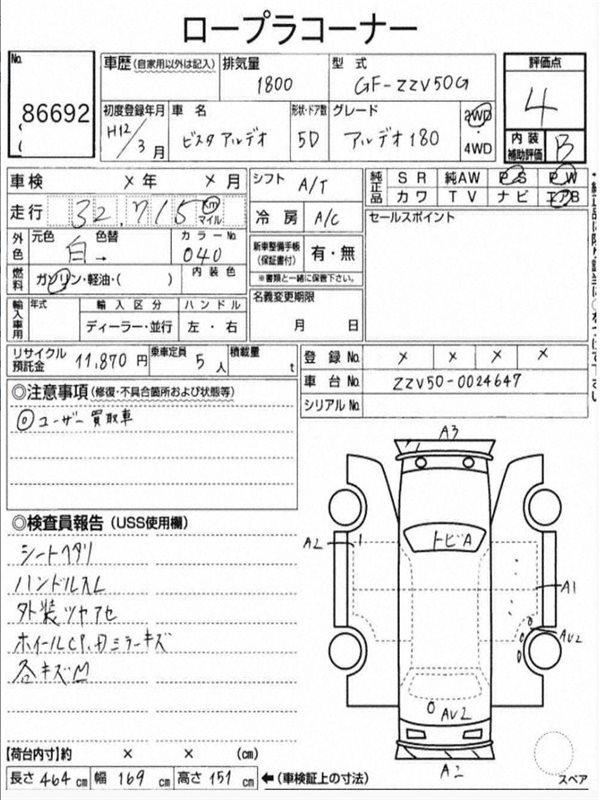 ロープラコーナー
No. 86692
車歴 (自家用以外は記入) 排気量 1800 型式 GF-ZZV50G
評価点 4
初度登録年月 H12/3月 車名 ビスタアルデオ 形状・ドア数 5D グレード アルデオ180 2WD・4WD
内装補助評価 B
車検 × 年 × 月 シフト A/T
純正品 SR 純AW PS PW
カワ TV ナビ エアB
走行 32,715 km マイル 冷房 A/C
セールスポイント
外色 元色 白 → 色替 カラーNo. 040
新車整備手帳(保証書付) 有・無
※書類と一緒に保管下さい。
燃料 ガソリン・軽油・( ) 内装色
名義変更期限 月 日
輸入車用 年式 輸入区分 ハンドル
ディーラー・並行 左・右
リサイクル預託金 11,870円 乗車定員 5人 積載量 t
登録No. × × × ×
車台No. ZZV50-0024647
シリアルNo.
◎注意事項 (修復・不具合箇所および状態等)
◎ユーザー買取車
◎検査員報告 (USS使用欄)
シートヘタリ
ハンドルスレ
外装ツヤアセ
ホイールCP、
ミラーキズ
各キズ
A3
トビA
A2
A1
AU2
AU2
A2
スペア
【荷台内寸】約 × × (cm)
長さ 464 cm 幅 169 cm 高さ 151 cm ←(車検証上の寸法)